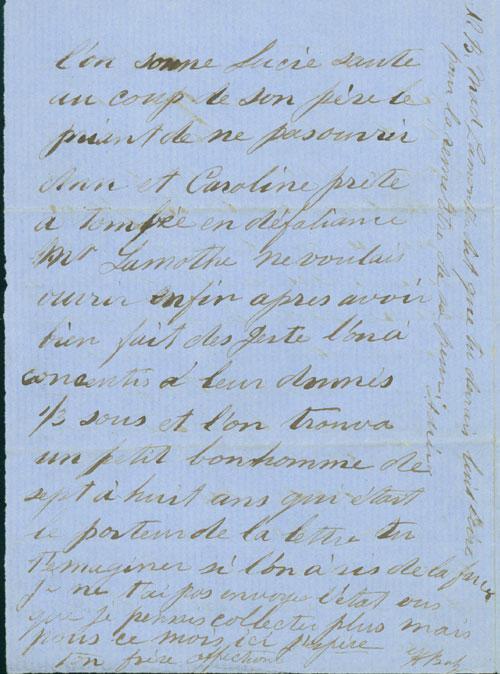 l'on sonne Lucie saute
au coup de son père le
priant de ne pas ouvrir
Ann et Caroline prète
à tombée en défaliance
Mr Lamothe ne voulais
ouvrir enfin apres avoir
bien fait des geste l'on à
concentis à leur donnés
1/3 sous et l'on trouva
un petit bonhomme de
sept à huit ans qui était
le porteur de la lettre tu
t'emaginer si l'on à ris de la farce
Je ne t'ai pas envoyer l'état
que je pensais collecter plus mais
pour ce mois ici j'espère
Ton frère affectioné
N.B. Mad Lamothe dit que tu devrais lui écrire
pour la